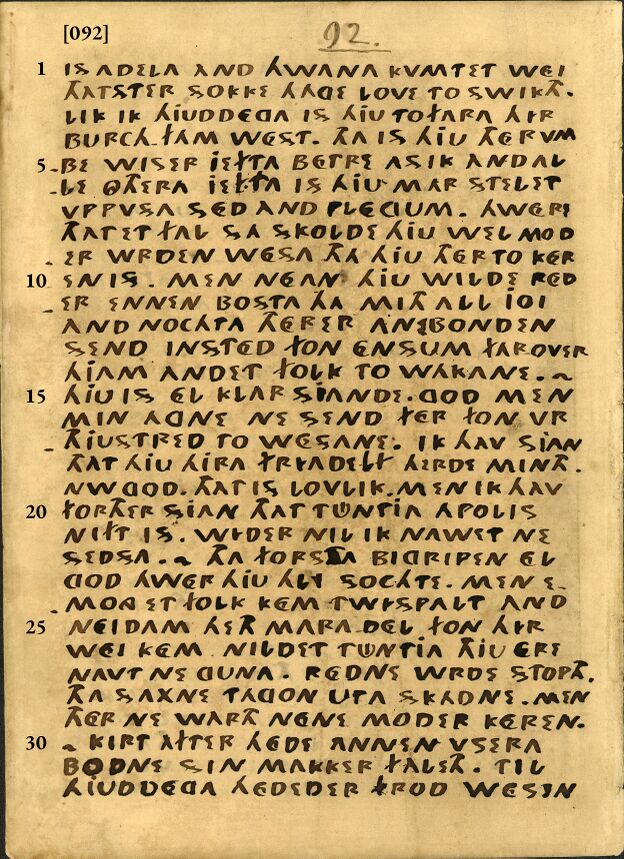 [092]
92.
1 IS ADELA AND HWANA KVMTET WEI
THATSTER SOKKE HAGE LOVE TO SWIKTH.
LIK IK HIUDDEGA IS HIU TOFARA HIR
BURCH.FAM WEST. THA IS HIU THERVM
5 -BE WISER IEFTA BETRE AS IK AND AL
-LE OTHERA IEFTA IS HIU MAR STELET
VPPVSA SED AND PLEGIUM. HWERI
THATET FAL SA SKOLDE HIU WEL MOD
-ER WRDEN WESA THA HIU THERTO KER
10 EN IS. MEN NEAN HIU WILDE RED
-ER ENNEN BOSTA HA MITH ALL IOI
AND NOCHTA THERER ANEBONDEN
SEND INSTED FON ENSUM FAROVER
HIAM ANDET FOLK TO WAKANE. ~
15 HIU IS EL KLAR SIANDE. GOD MEN
MIN AGNE NE SEND FER FON VR
-THIUSTRED TO WESANE. IK HAV SIAN
THAT HIU HIRA FRIADELF HERDE MINTH.
NW GOD. THAT IS LOVLIK. MEN IK HAV
20 FORTHER SIAN THAT TÜNTIA APOLIS
NIFT IS. WIDER NIL IK NAWET NE
SEDSA. ~ THA FORSTA BIGRIPEN EL
GOD HWER HIU HLY SOCHTE. MEN E-
-MODET FOLK KEM TWISPALT AND
25 NEIDAM HETH MARA DEL FON HIR
WEI KEM. NILDET TÜNTIA THIU ERE
NAVT NE GUNA. REDNE WRDE STOPTH.
THA SAXNE TAGON UTA SKADNE. MEN
THER NE WARTH NENE MODER KEREN.
30 ~ KIRT AFTER HEDE ANNEN VSERA
BODNE SIN MAKKER FALETH. TIL
HIUDDEGA HEDEDER FROD WESIN